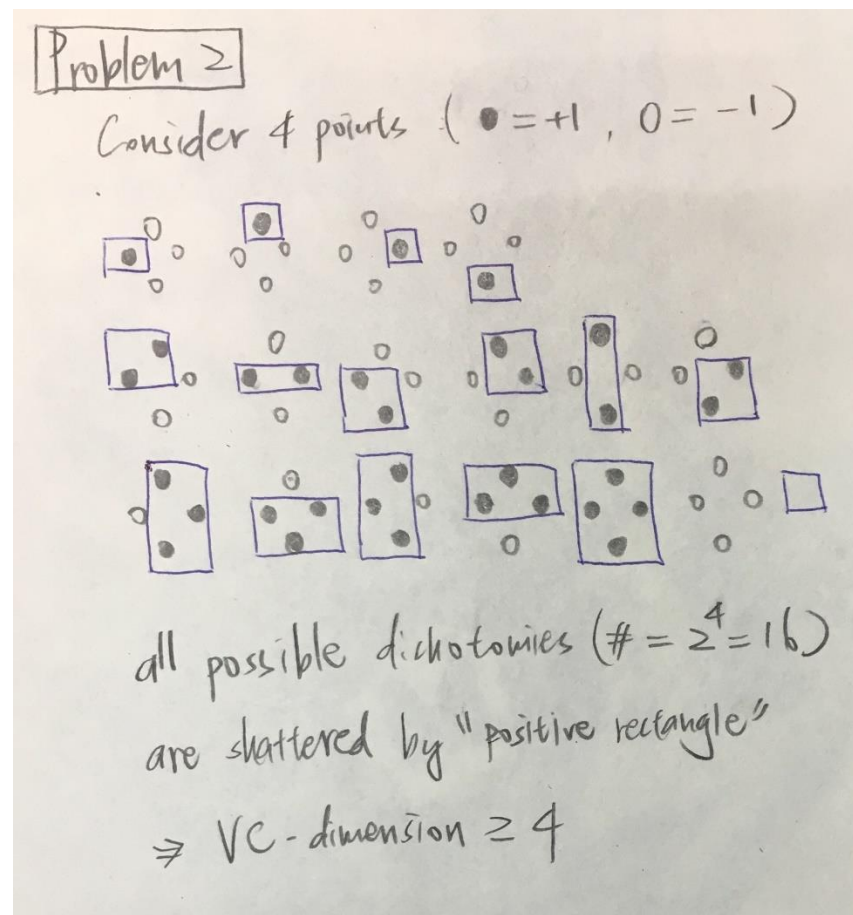 Problem 2
Consider 4 points ( ● = +1 , 0 = -1 )
all possible dichotomies (# = 2^4 = 16)
are shattered by "positive rectangle"
⇒ VC-dimension ≥ 4